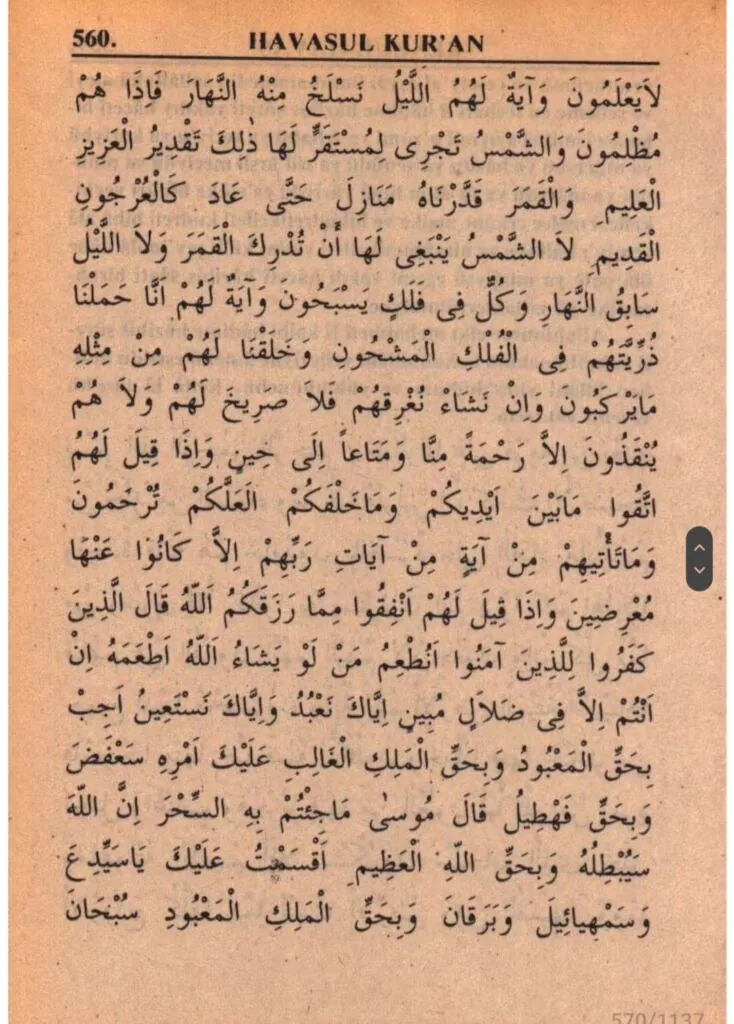 560.
HAVASUL KUR'AN
لاَيَعْلَمُونَ وَآيَةٌ لَهُمُ اللَّيْلُ نَسْلَخُ مِنْهُ النَّهَارَ فَاِذَا هُمْ
مُظْلِمُونَ وَالشَّمْسُ تَجْرِى لِمُسْتَقَرٍّ لَهَا ذٰلِكَ تَقْدِيرُ الْعَزِيزِ
الْعَلِيمِ وَالْقَمَرَ قَدَّرْنَاهُ مَنَازِلَ حَتَّى عَادَ كَالْعُرْجُونِ
الْقَدِيمِ لاَ الشَّمْسُ يَنْبَغِى لَهَا أَنْ تُدْرِكَ الْقَمَرَ وَلاَ اللَّيْلُ
سَابِقُ النَّهَارِ وَكُلٌّ فِى فَلَكٍ يَسْبَحُونَ وَآيَةٌ لَهُمْ اَنَّا حَمَلْنَا
ذُرِّيَّتَهُمْ فِى الْفُلْكِ الْمَشْحُونِ وَخَلَقْنَا لَهُمْ مِنْ مِثْلِهِ
مَايَرْكَبُونَ وَاِنْ نَشَاءْ نُغْرِقْهُمْ فَلاَ صَرِيخَ لَهُمْ وَلاَ هُمْ
يُنْقَذُونَ اِلاَّ رَحْمَةً مِنَّا وَمَتَاعاً اِلَى حِينٍ وَاِذَا قِيلَ لَهُمُ
اتَّقُوا مَابَيْنَ اَيْدِيكُمْ وَمَاخَلْفَكُمْ الَعَلَّكُمْ تُرْحَمُونَ
وَمَاتَأْتِيهِمْ مِنْ آيَةٍ مِنْ آيَاتِ رَبِّهِمْ اِلاَّ كَانُوا عَنْهَا
مُعْرِضِينَ وَاِذَا قِيلَ لَهُمْ اَنْفِقُوا مِمَّا رَزَقَكُمُ اَللّهُ قَالَ الَّذِينَ
كَفَرُوا لِلَّذِينَ آمَنُوا اَنُطْعِمُ مَنْ لَوْ يَشَاءُ اَللّهُ اَطْعَمَهُ اِنْ
اَنْتُمْ اِلاَّ فِى ضَلاَلٍ مُبِينٍ اِيَّاكَ نَعْبُدُ وَاِيَّاكَ نَسْتَعِينُ اَجِبْ
بِحَقِّ الْمَعْبُودُ وَبِحَقِّ الْمَلِكِ الْغَالِبِ عَلَيْكَ اَمْرِهِ سَعْفَصَ
وَبِحَقِّ فَهْطِيلُ قَالَ مُوسٰى مَاجِئْتُمْ بِهِ السِّحْرَ اِنَّ اللّهَ
سَيُبْطِلُهُ وَبِحَقِّ اللّهِ الْعَظِيمِ اَقْسَمْتُ عَلَيْكَ يَاسَيِّدِعَ
وَسَمْهِيائِيلَ وَبَرَقَانَ وَبِحَقِّ الْمَلِكِ الْمَعْبُودِ سُبْحَانَ
570/1137